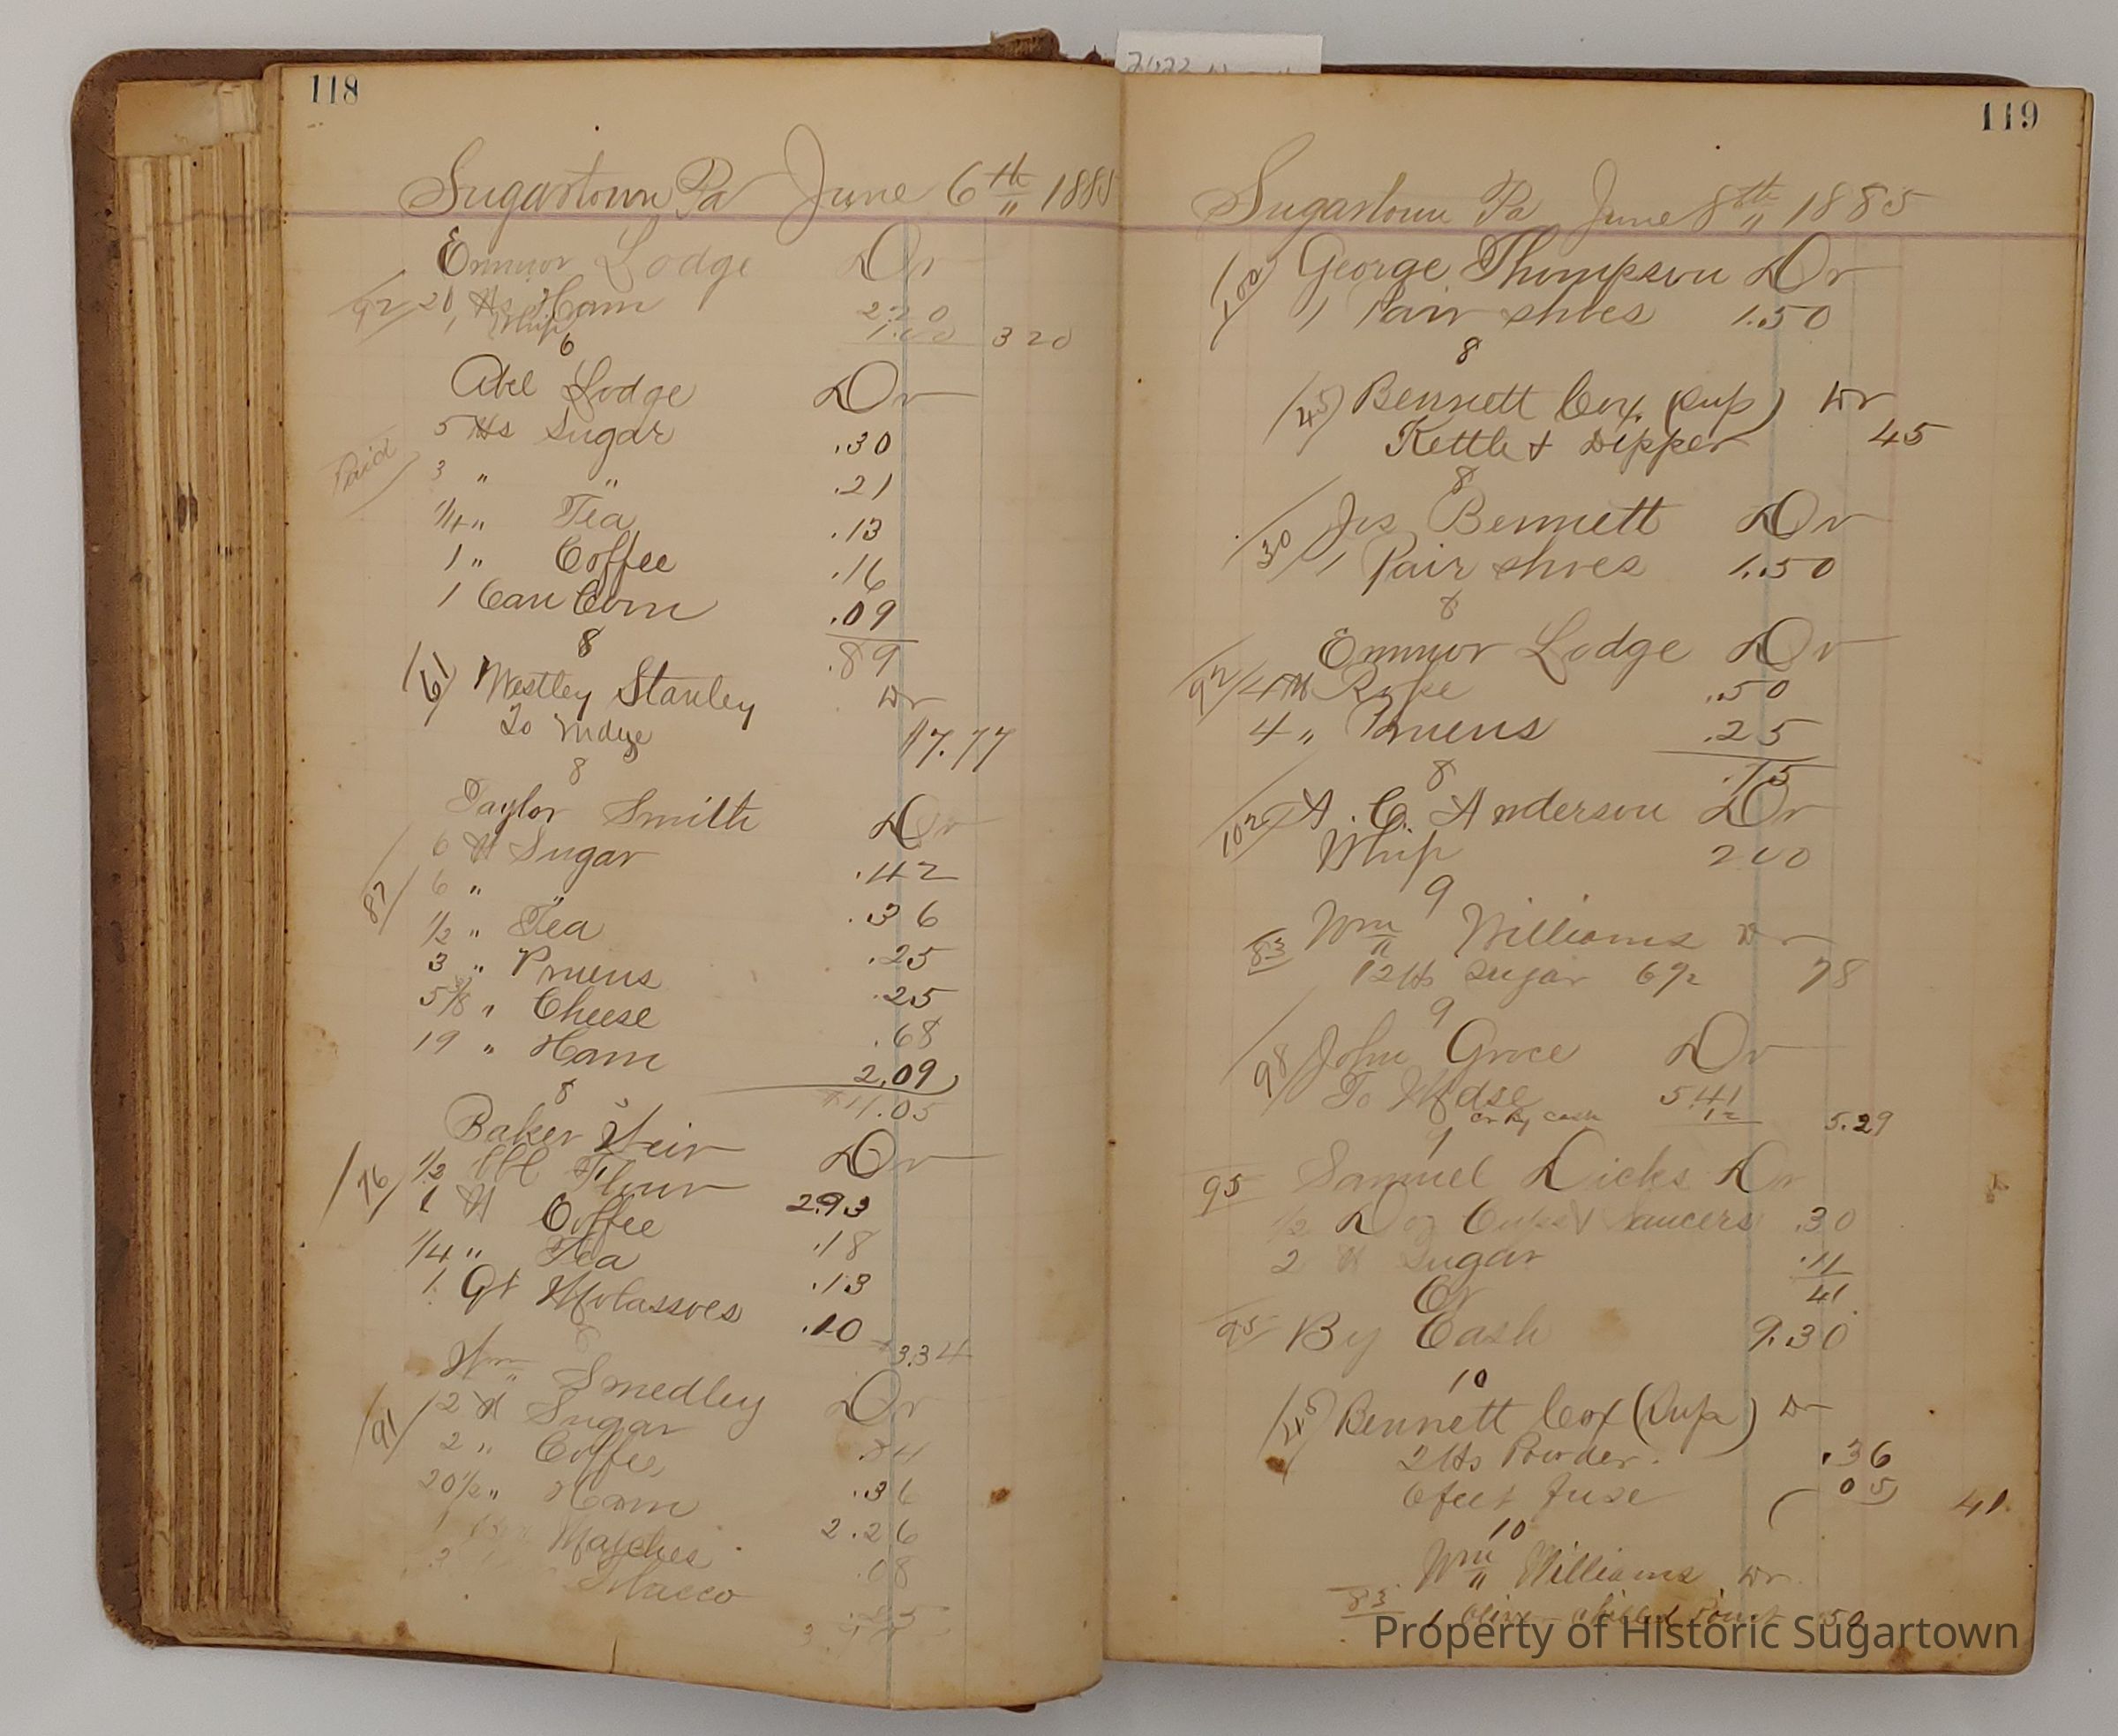 118
Sugartown Pa June 6th 1885
Emmor Lodge Dr
92 20 lbs Ham 2 20
1 Whip 1.00 3 20
6
Abel Lodge Dr
5 lbs Sugar .30
Paid
3 " " .21
1/4 " Tea .13
1 " Coffee .16
1 Can Corn .09
.89
8
61 Westley Stanley Dr
To mdse 17.77
8
Taylor Smith Dr
6 lb Sugar .42
87
6 " " .36
1/2 " Tea .25
3 " Pruens .25
5 5/8 " Cheese .68
19 " Ham 2.09
$4.05
8
Baker Weir Dr
76 1/2 bbl Flour 2.93
1 lb Coffee .18
1/4 " Tea .13
1 Qt Molassoes .10
3.34
Wm Smedley Dr
91 12 lb Sugar .84
2 " Coffee .36
20 1/2 " Ham 2.26
1 Matches .08
2 Tobacco
119
Sugartown Pa June 8th 1885
100 George Thompson Dr
1 Pair shoes 1.50
8
45 Bennett Cox (Sup) Dr
Kettle & Dipper 45
8
30 Jos Bennett Dr
1 Pair shoes 1.50
8
Emmor Lodge Dr
92 4 lb .50
4 " Pruens .25
.75
8
102 A. C. Anderson Dr
Whip 200
9
83 Wm Williams Dr
12 lbs Sugar 6 1/2 78
9
98 John Grace Dr
To Mdse 5.41
Cr By cash 12 5.29
9
95 Samuel Dicks Dr
1/2 Doz Cups & Saucers .30
2 lb Sugar .11
41
Cr
95 By Cash 9.30
10
45 Bennett Cox (Sup) Dr
2 lbs Powder .36
6 feet fuse 05 41
10
Wm Williams Dr
83 1 Oliver Chilled Point 50
Property of Historic Sugartown